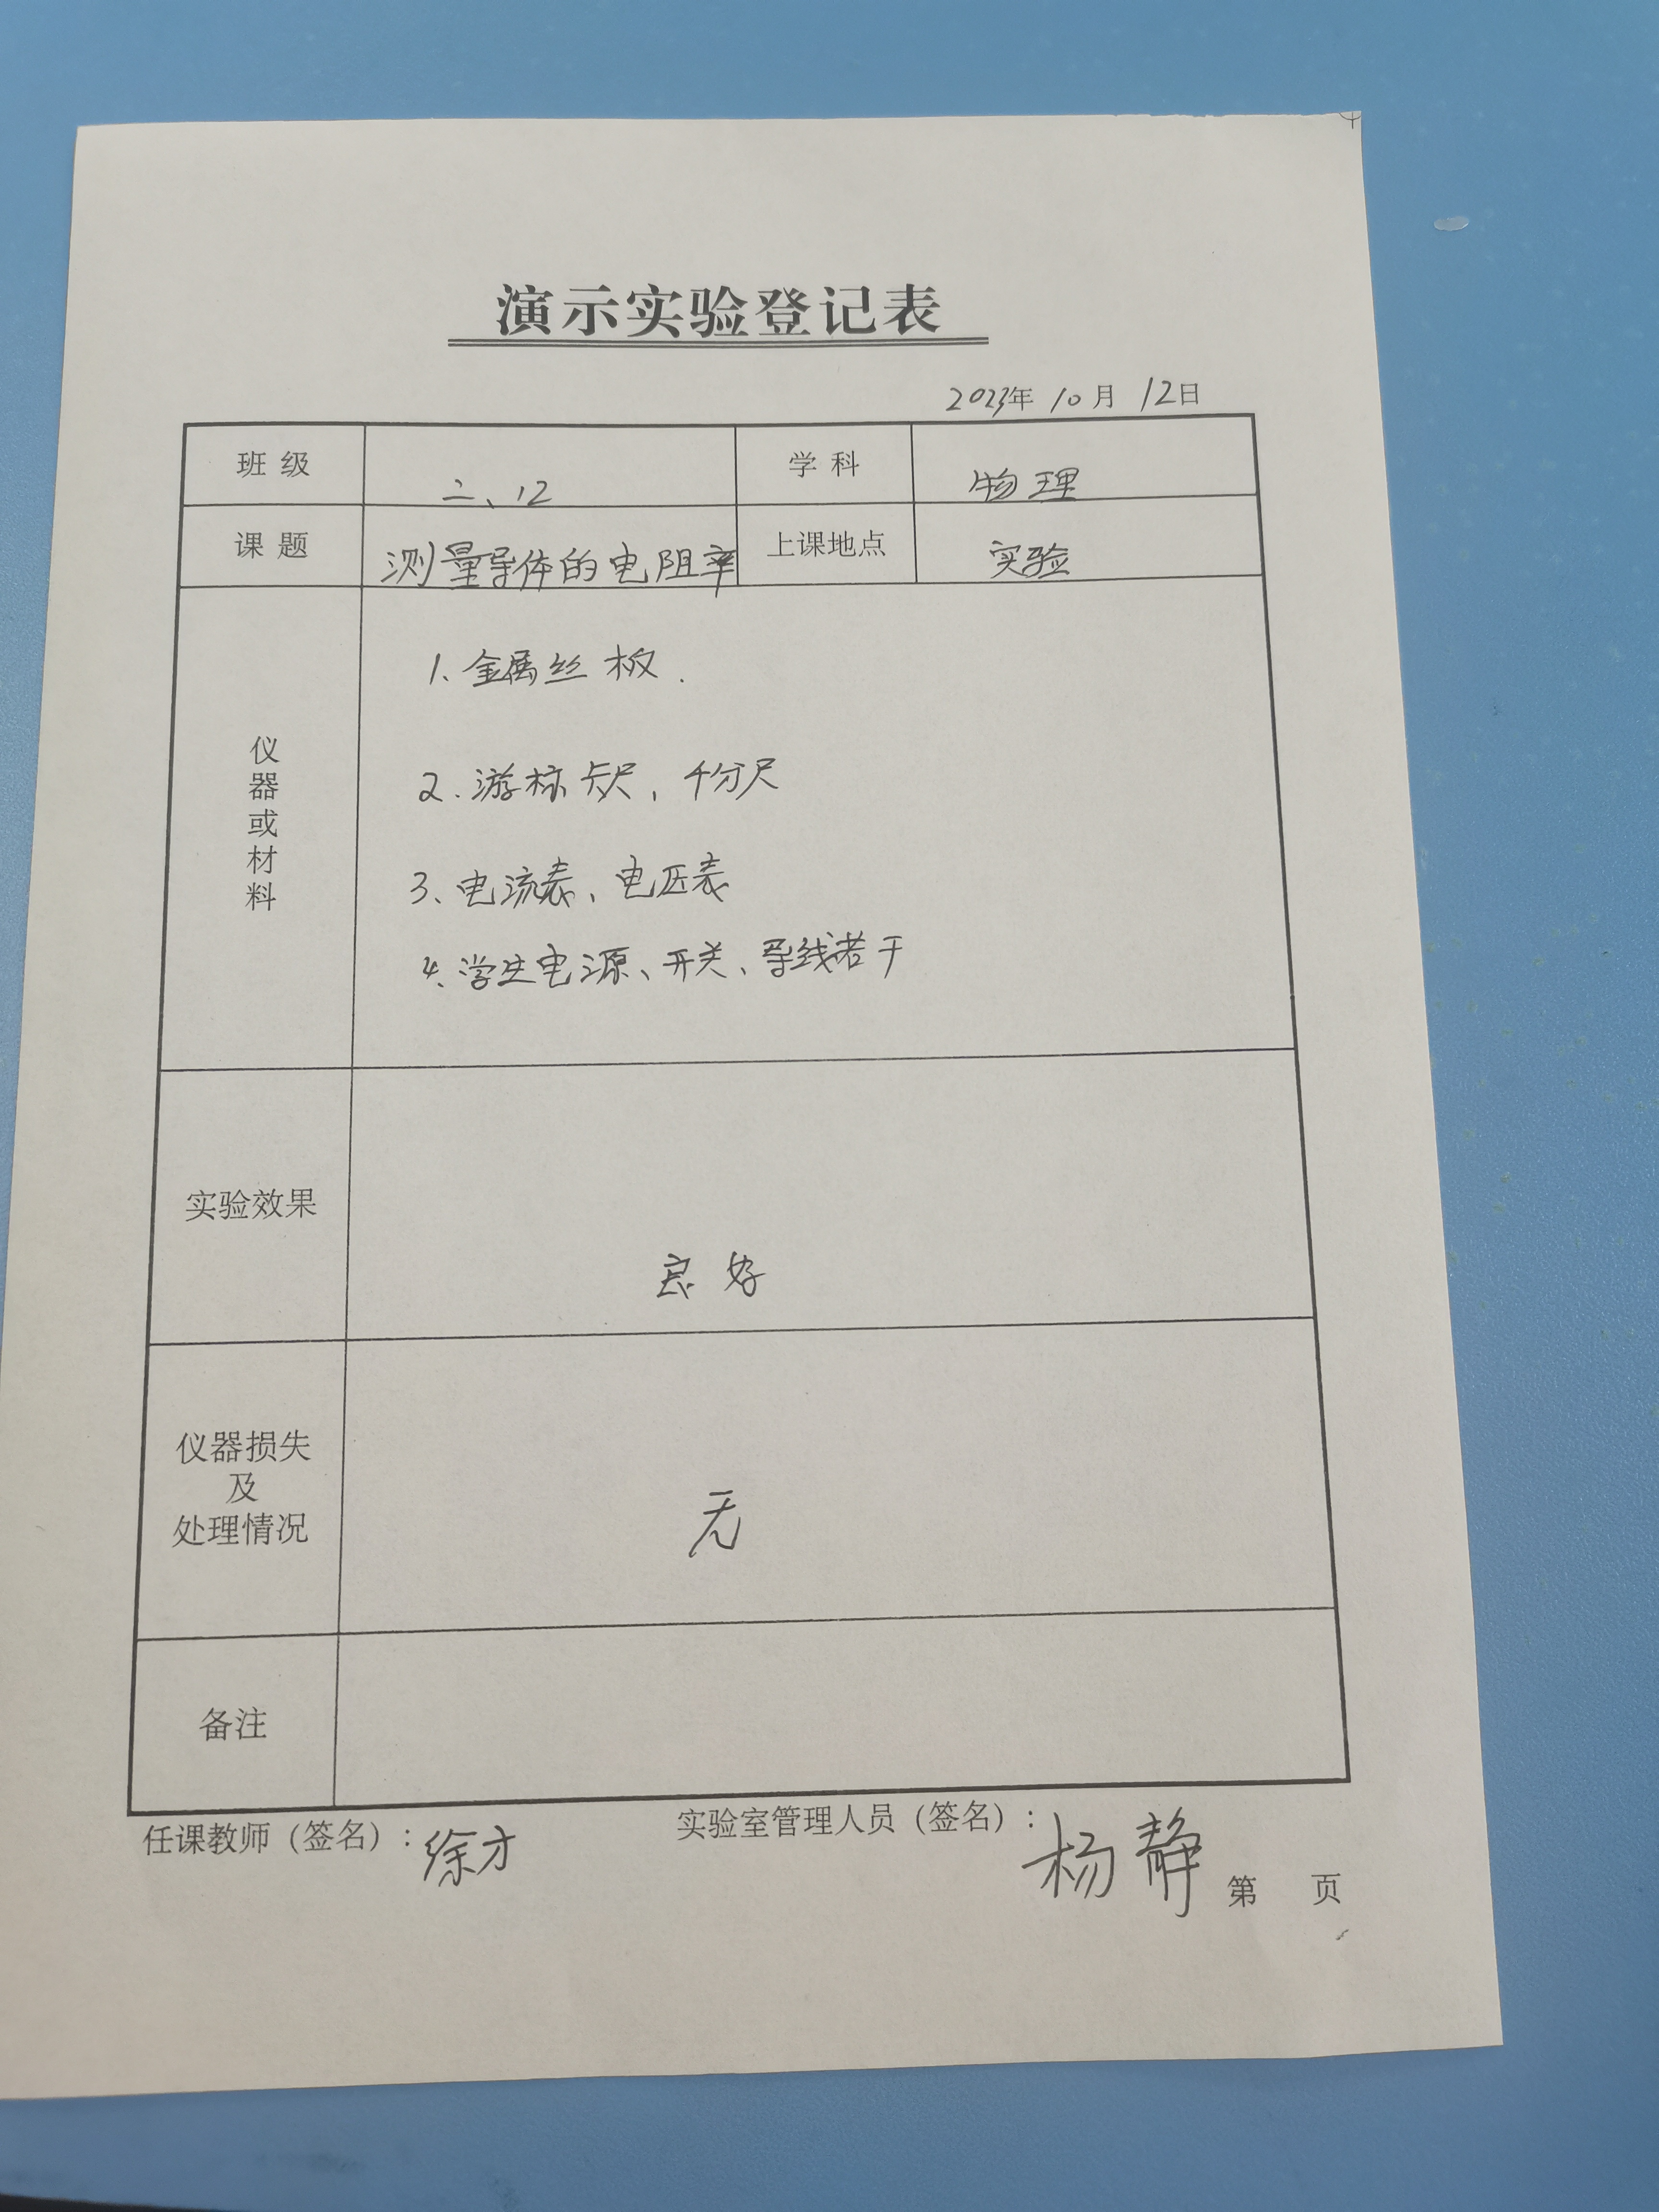 演示实验登记表
2023年 10月 12日
班级 二、12 学科 物理
课题 测量导体的电阻率 上课地点 实验
仪器或材料
1、金属丝板.
2.游标卡尺,千分尺
3、电流表、电压表
4、学生电源、开关、导线若干
实验效果 良好
仪器损失
及
处理情况
无
备注
任课教师(签名):徐才 实验室管理人员(签名):杨静
第 页